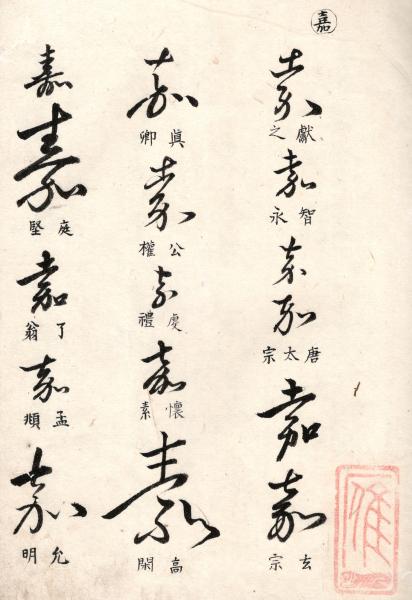 嘉
嘉
獻之
嘉
智永
嘉
唐太宗
嘉
嘉
玄宗
嘉
眞卿
嘉
公權
嘉
虔禮
嘉
懷素
嘉
高閑
嘉
嘉
庭堅
嘉
了翁
嘉
孟頫
嘉
允明